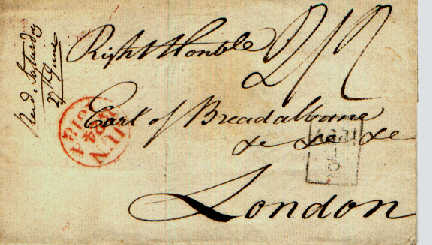 Right Honble
2/2
Earl of Breadalbane
&c &c &c
London
Recd. Saturday
27 June